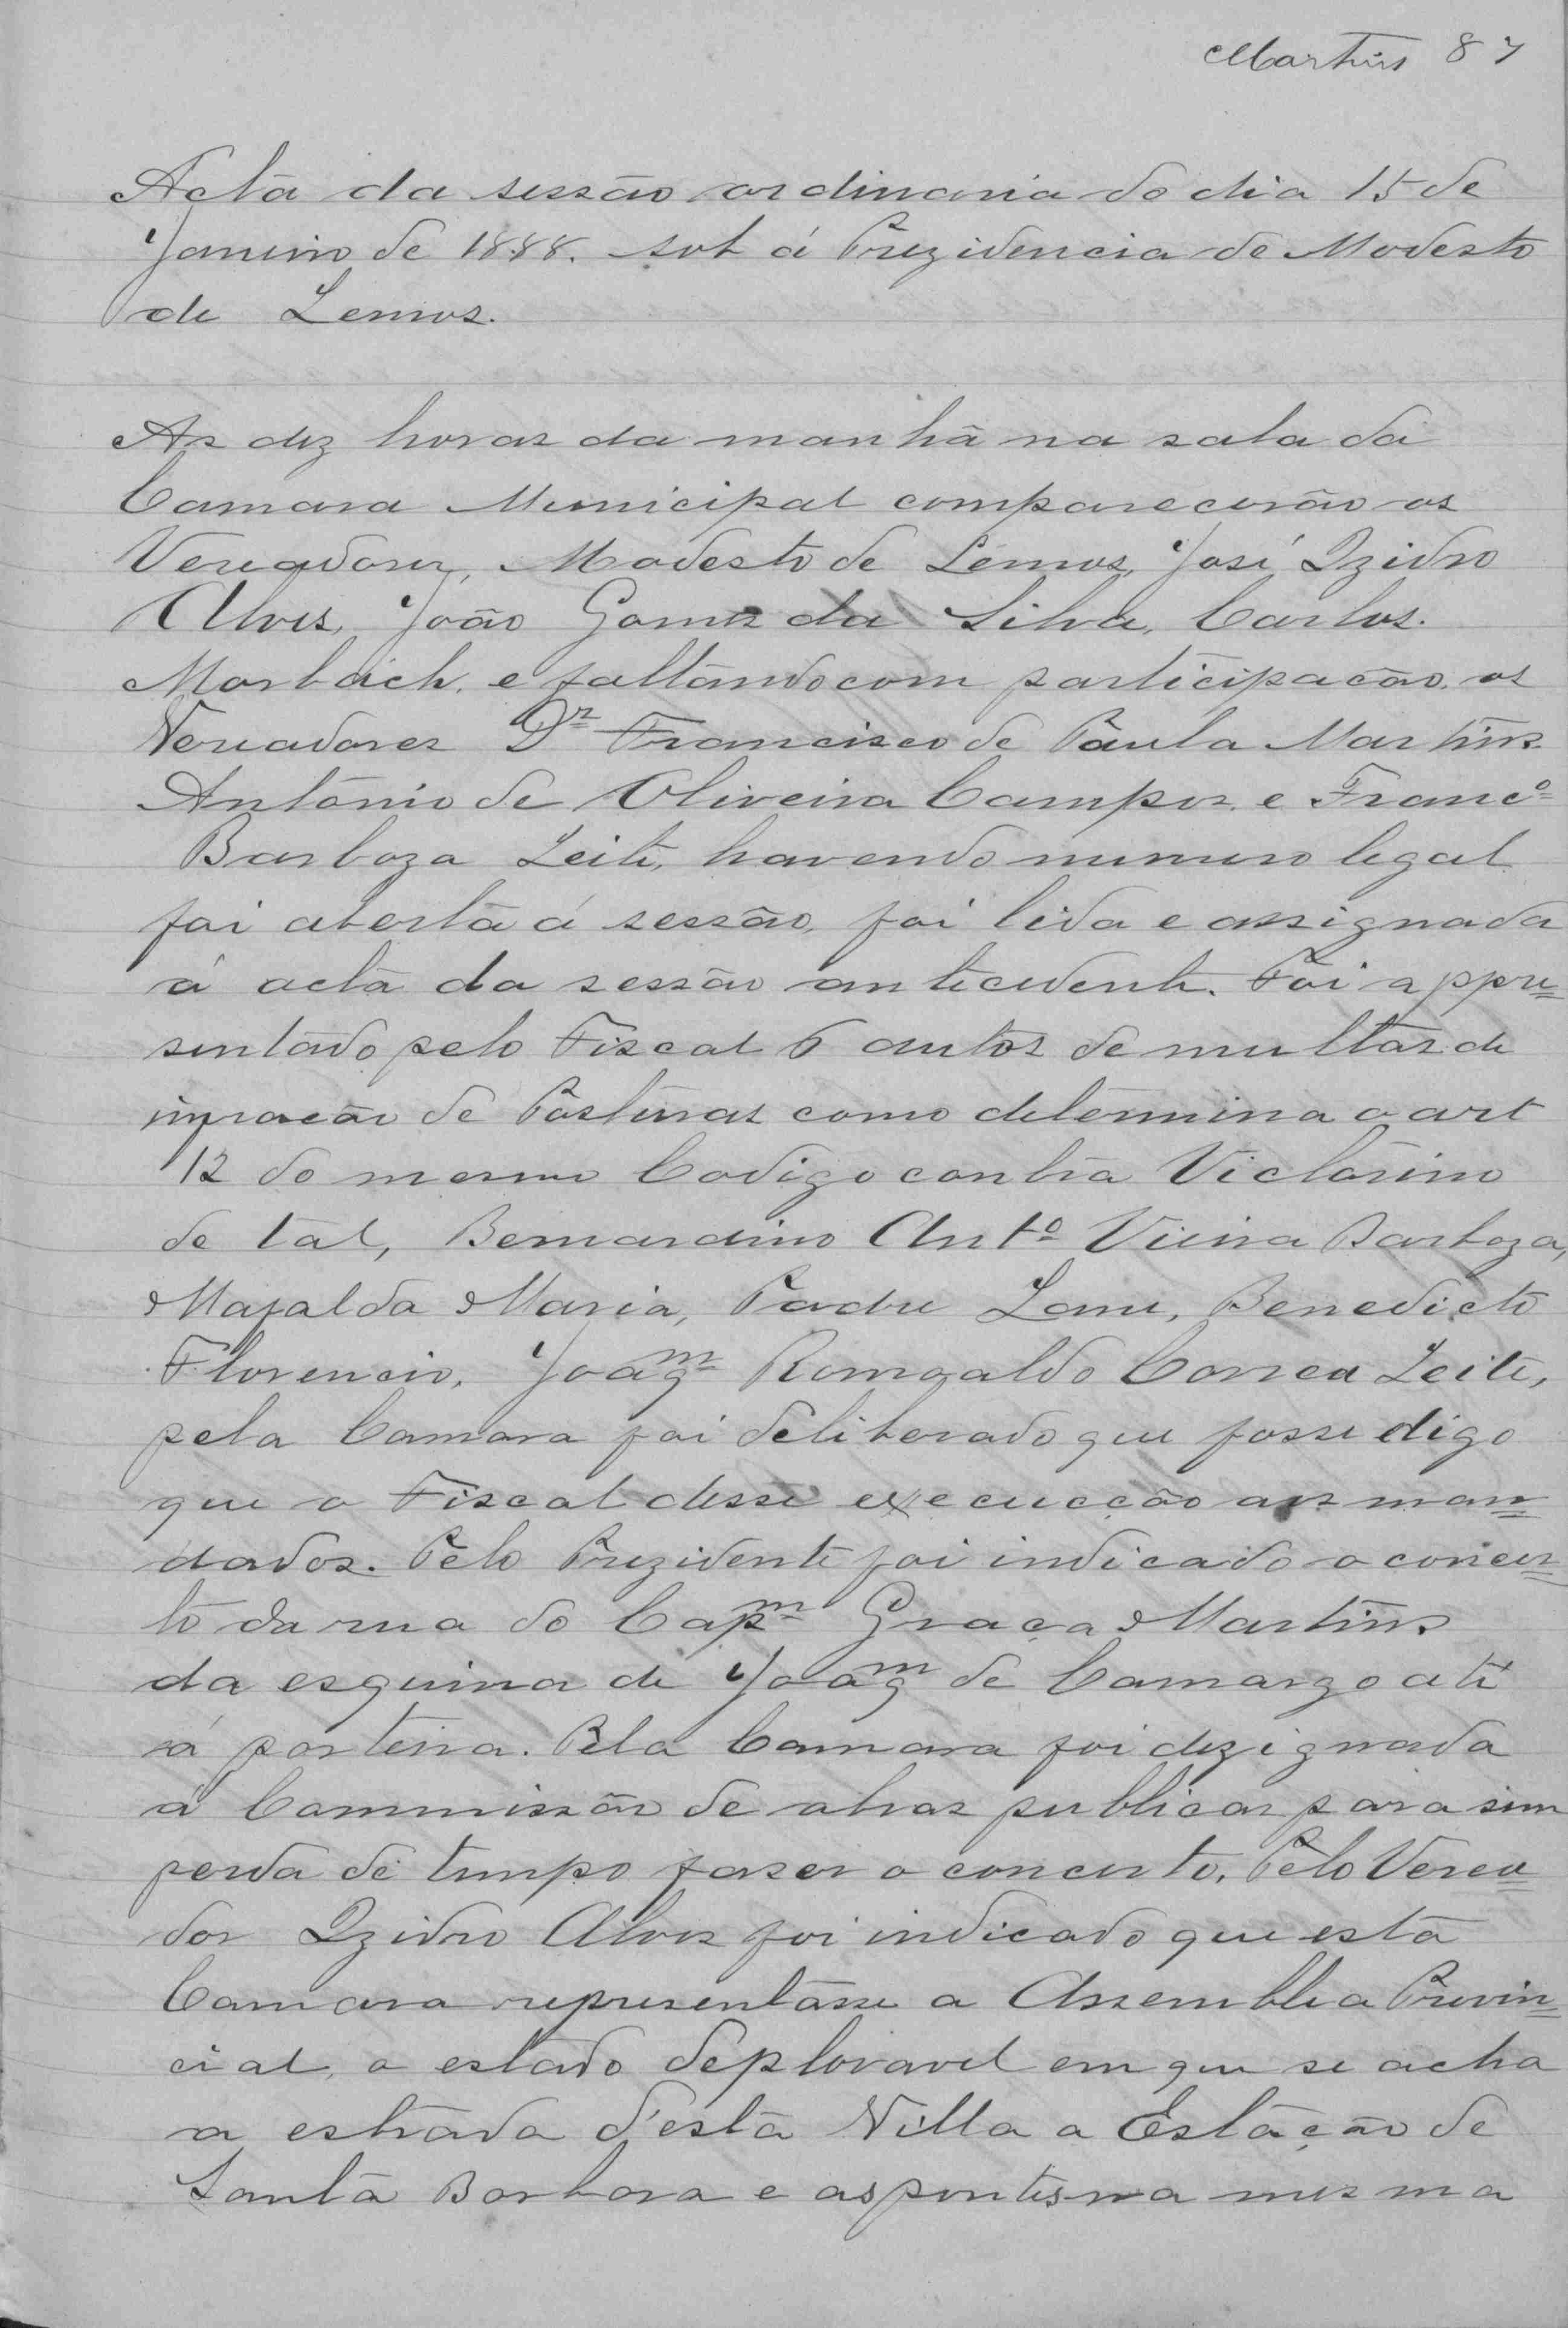 Martins 87
Acta da sessão ordinaria do dia 15 de
Janeiro de 1888. sob á Prezidencia de Modesto
de Lemos.
As dez horas da manhã na sala da
Camara Municipal comparecerão os
Vereadores, Modesto de Lemos, José Izidro
Alves, João Gomes da Silva, Carlos.
Morbach, e faltando com participacão, os
Vereadores Dr Francisco de Paula Martins
Antonio de Oliveira Campos, e Franco
Barboza Leite, havendo numero legal
foi aberta á sessão, foi lida e assignada
á acta da sessão antecedente. Foi appre=
sentado pelo Fiscal 6 autos de multas de
infracão de Posturas como determina o art
12 do mesmo Codigo contra Victorino
de tal, Bernardino Anto Vieira Barboza,
Mafalda Maria, Padre Lane, Benedicto
Florencio, Joaqm Romoaldo Correa Leite,
pela Camara foi deliberado que fosse digo
que o Fiscal desse execucção aos man=
dados. Pelo Prezidente foi indicado o concer=
to da rua do Capm Graça Martins
da esquina de Joaqm de Camargo até
á porteira. Pela Camara foi dezignada
á Commissão de obras publicas para sem
perda de tempo faser o concerto. Pelo Verea=
dor Izidro Alves foi indicado que esta
Camara representasse a Assemblea Provin=
cial, o estado deploravel em que se acha
a estrada d'esta Villa a Estação de
Santa Barbara e as pontes na mesma